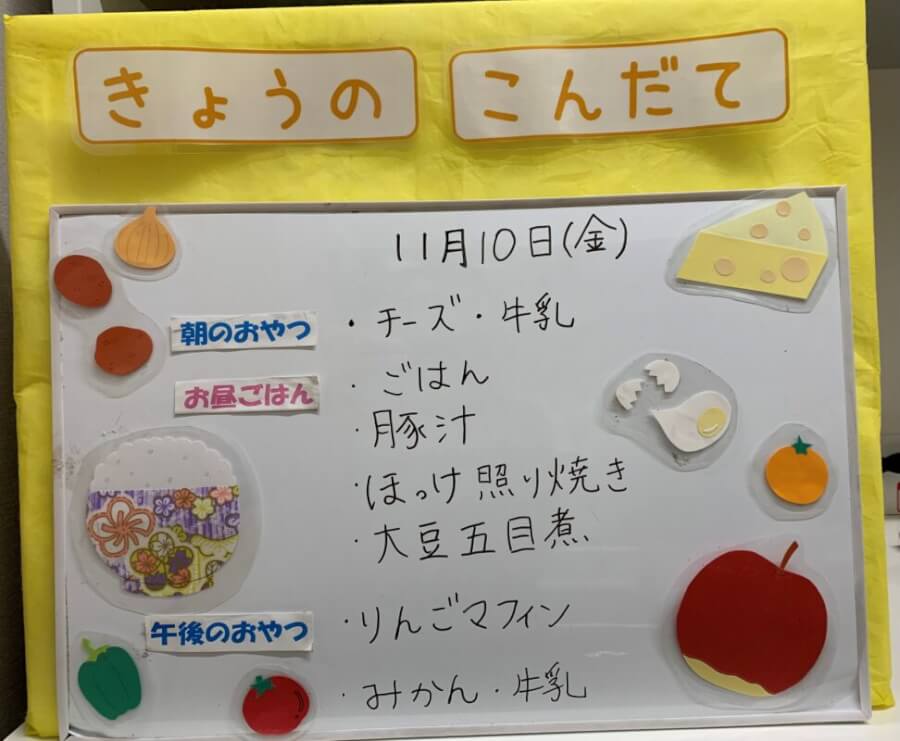 きょうの こんだて
11月10日(金)
朝のおやつ ・チーズ・牛乳
お昼ごはん ・ごはん
・豚汁
・ほっけ照り焼き
・大豆五目煮
午後のおやつ ・りんごマフィン
・みかん・牛乳